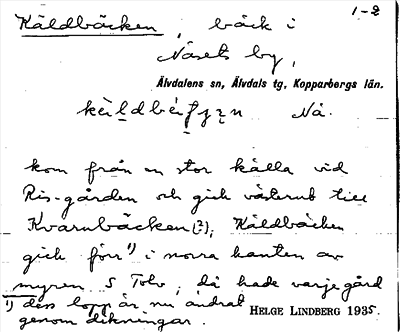 1-2
Käldbäcken, bäck i
Näsets by,
Älvdalens sn, Älvdals tg, Kopparbergs län.
Nä.
kom från en stor källa vid
Ris-gården och gick västerut till
Kvarnbäcken(?); Käldbäcken
gick förr¹) i norra kanten av
myren S Tolv, då hade varje gård
¹) dess lopp är nu ändrat
genom dikningar.
HELGE LINDBERG 1935.